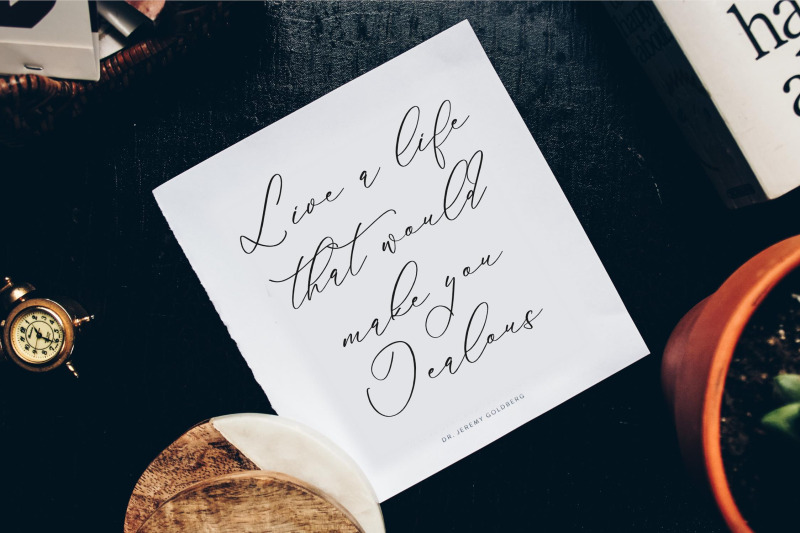 Live a life
that would
make you
Jealous
DR. JEREMY GOLDBERG
ha
a